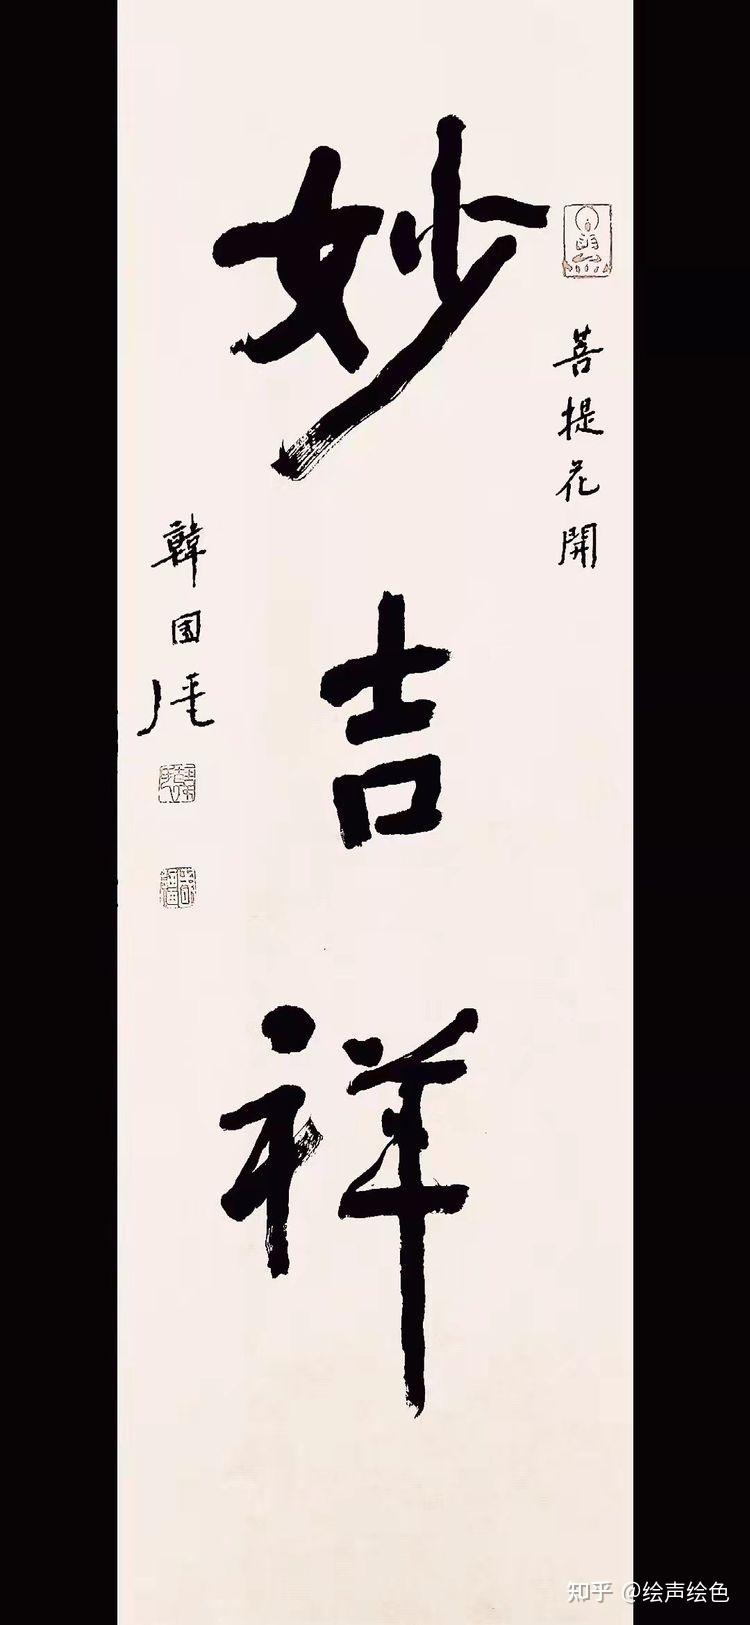 菩提花開
妙吉祥
韓国
知乎 @绘声绘色